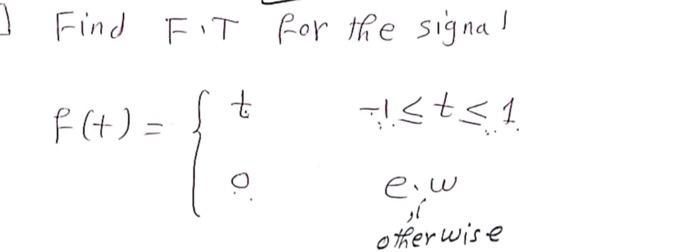 ] Find F.T for the signal
f(t) = { t -1 ≤ t ≤ 1
0 e.w
otherwise